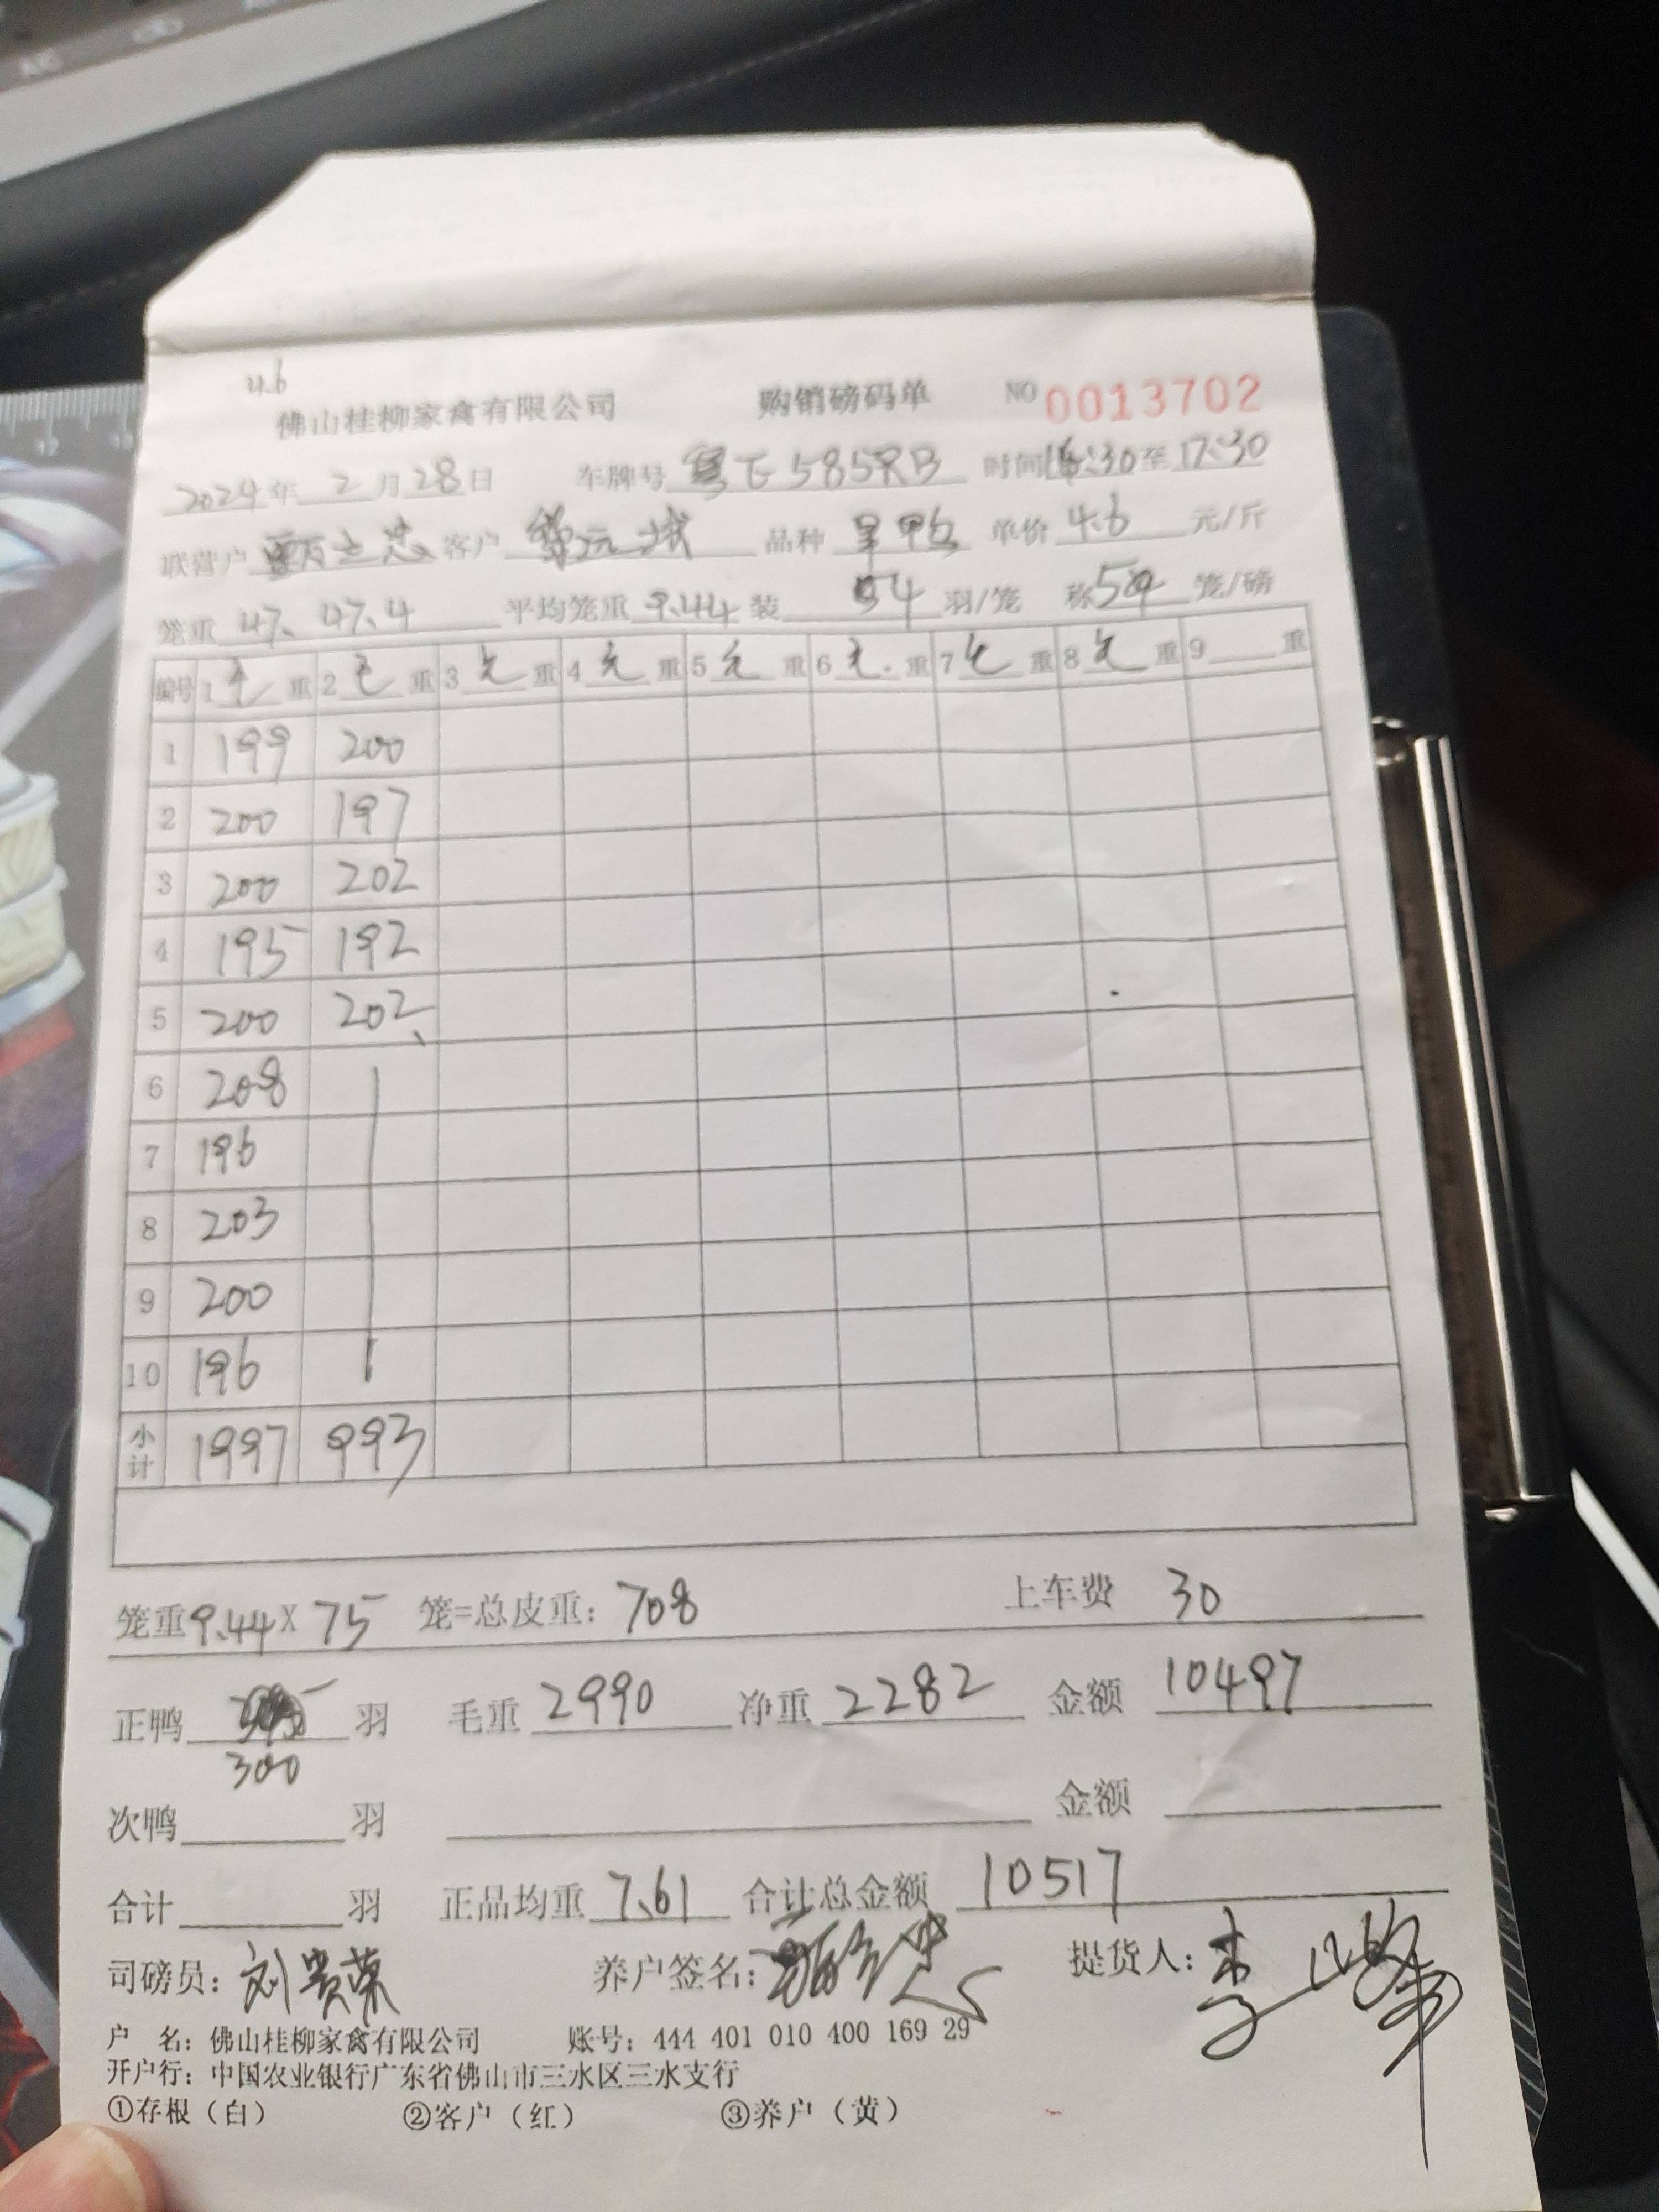 4.6
佛山桂柳家禽有限公司 购销磅码单 NO 0013702
2024年 2 月 28 日 车牌号 粤E585RB 时间 16:30 至 17:30
联营户 客户 品种 单价 4.6 元/斤
笼重 47、47.4 平均笼重 9.44 装 4 羽/笼 称 5 笼/磅
编号 1 毛 重 2 毛 重 3 毛 重 4 毛 重 5 毛 重 6 毛 重 7 毛 重 8 毛 重 9 重
1 199 200
2 200 197
3 200 202
4 195 192
5 200 202
6 208
7 196
8 203
9 200
10 196
小计 1997 993
笼重 9.44 X 75 笼=总皮重: 708 上车费 30
正鸭 羽 毛重 2990 净重 2282 金额 10497
300
次鸭 羽 金额
合计 羽 正品均重 7.61 合计总金额 10517
司磅员: 刘贵荣 养户签名: 提货人: 李
户 名: 佛山桂柳家禽有限公司 账号: 444 401 010 400 169 29
开户行: 中国农业银行广东省佛山市三水区三水支行
①存根（白） ②客户（红） ③养户（黄）